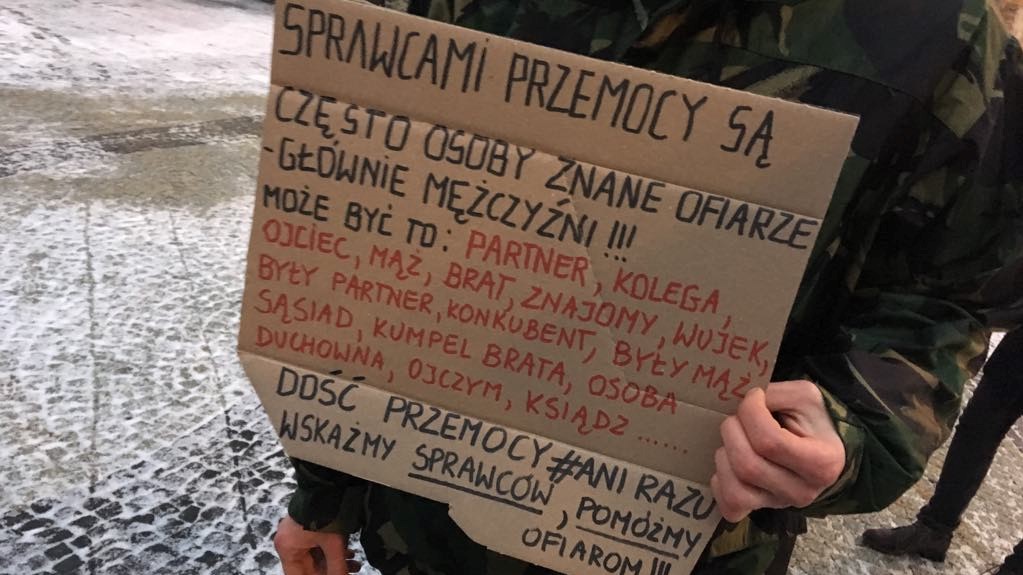 SPRAWCAMI PRZEMOCY SĄ
CZĘSTO OSOBY ZNANE OFIARZE
-GŁÓWNIE MĘŻCZYŹNI !!!
MOŻE BYĆ TO: PARTNER, KOLEGA,
OJCIEC, MĄŻ, BRAT, ZNAJOMY, WUJEK,
BYŁY PARTNER, KONKUBENT, BYŁY MĄŻ,
SĄSIAD, KUMPEL BRATA, OSOBA
DUCHOWNA, OJCZYM, KSIĄDZ ......
DOŚĆ PRZEMOCY #ANI RAZU
WSKAŻMY SPRAWCÓW, POMÓŻMY
OFIAROM !!!